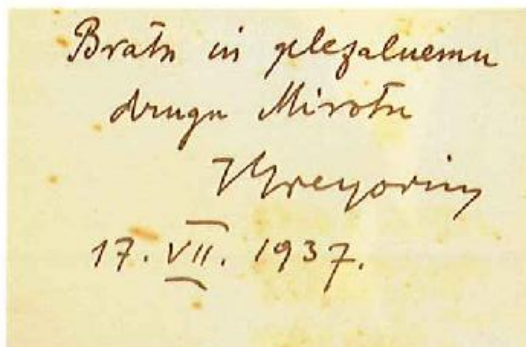 Bratu in plezalnemu
drugu Mirotu
JGregorin
17. VII. 1937.